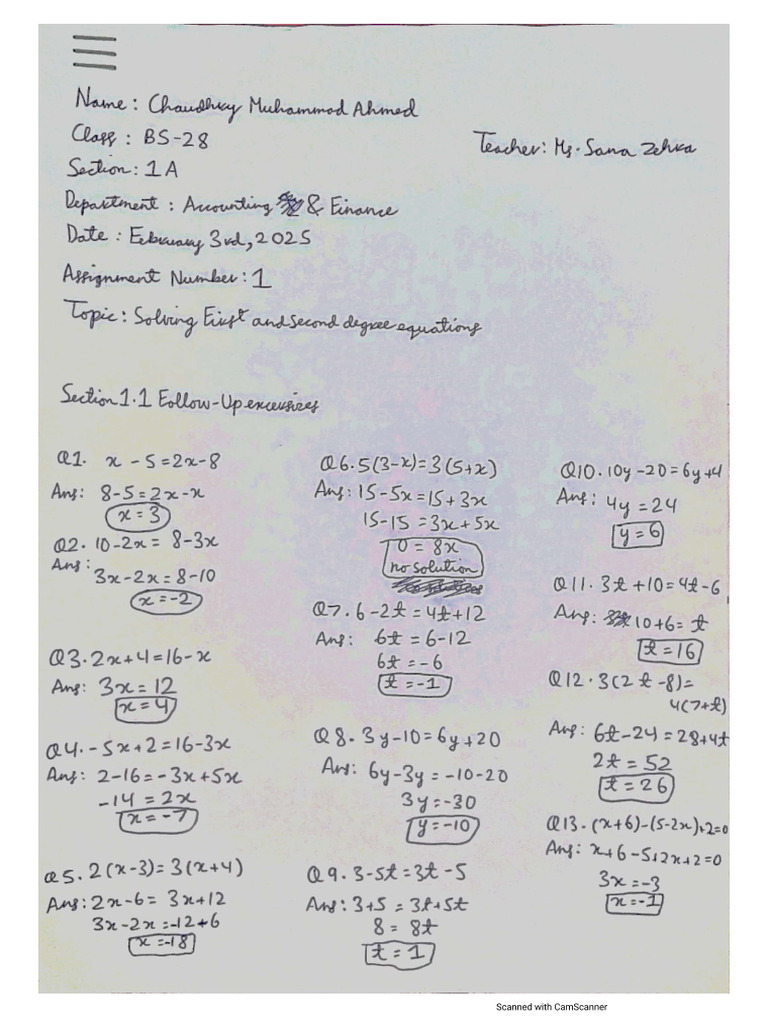 Name: Chaudhry Muhammad Ahmed
Class: BS-28
Teacher: Ms. Sana Zehra
Section: 1A
Department: Accounting & Finance
Date: February 3rd, 2025
Assignment Number: 1
Topic: Solving First and Second degree equations
Section 1.1 Follow-Up excersizes
Q1. x - 5 = 2x - 8
Ans: 8-5 = 2x-x
x = 3
Q2. 10-2x = 8-3x
Ans:
3x-2x = 8-10
x = -2
Q3. 2x+4 = 16-x
Ans: 3x = 12
x = 4
Q4. -5x+2 = 16-3x
Ans: 2-16 = -3x+5x
-14 = 2x
x = -7
Q5. 2(x-3) = 3(x+4)
Ans: 2x-6 = 3x+12
3x-2x = -12+6
x = -18
Q6. 5(3-x) = 3(5+x)
Ans: 15-5x = 15+3x
15-15 = 3x+5x
0 = 8x
no solution
Q7. 6-2t = 4t+12
Ans: 6t = 6-12
6t = -6
t = -1
Q8. 3y-10 = 6y+20
Ans: 6y-3y = -10-20
3y = -30
y = -10
Q9. 3-5t = 3t-5
Ans: 3+5 = 3t+5t
8 = 8t
t = 1
Q10. 10y-20 = 6y+4
Ans: 4y = 24
y = 6
Q11. 3t+10 = 4t-6
Ans: 10+6 = t
t = 16
Q12. 3(2t-8) =
4(7+t)
Ans: 6t-24 = 28+4t
2t = 52
t = 26
Q13. (x+6)-(5-2x)+2=0
Ans: x+6-5+2x+2=0
3x = -3
x = -1
Scanned with CamScanner